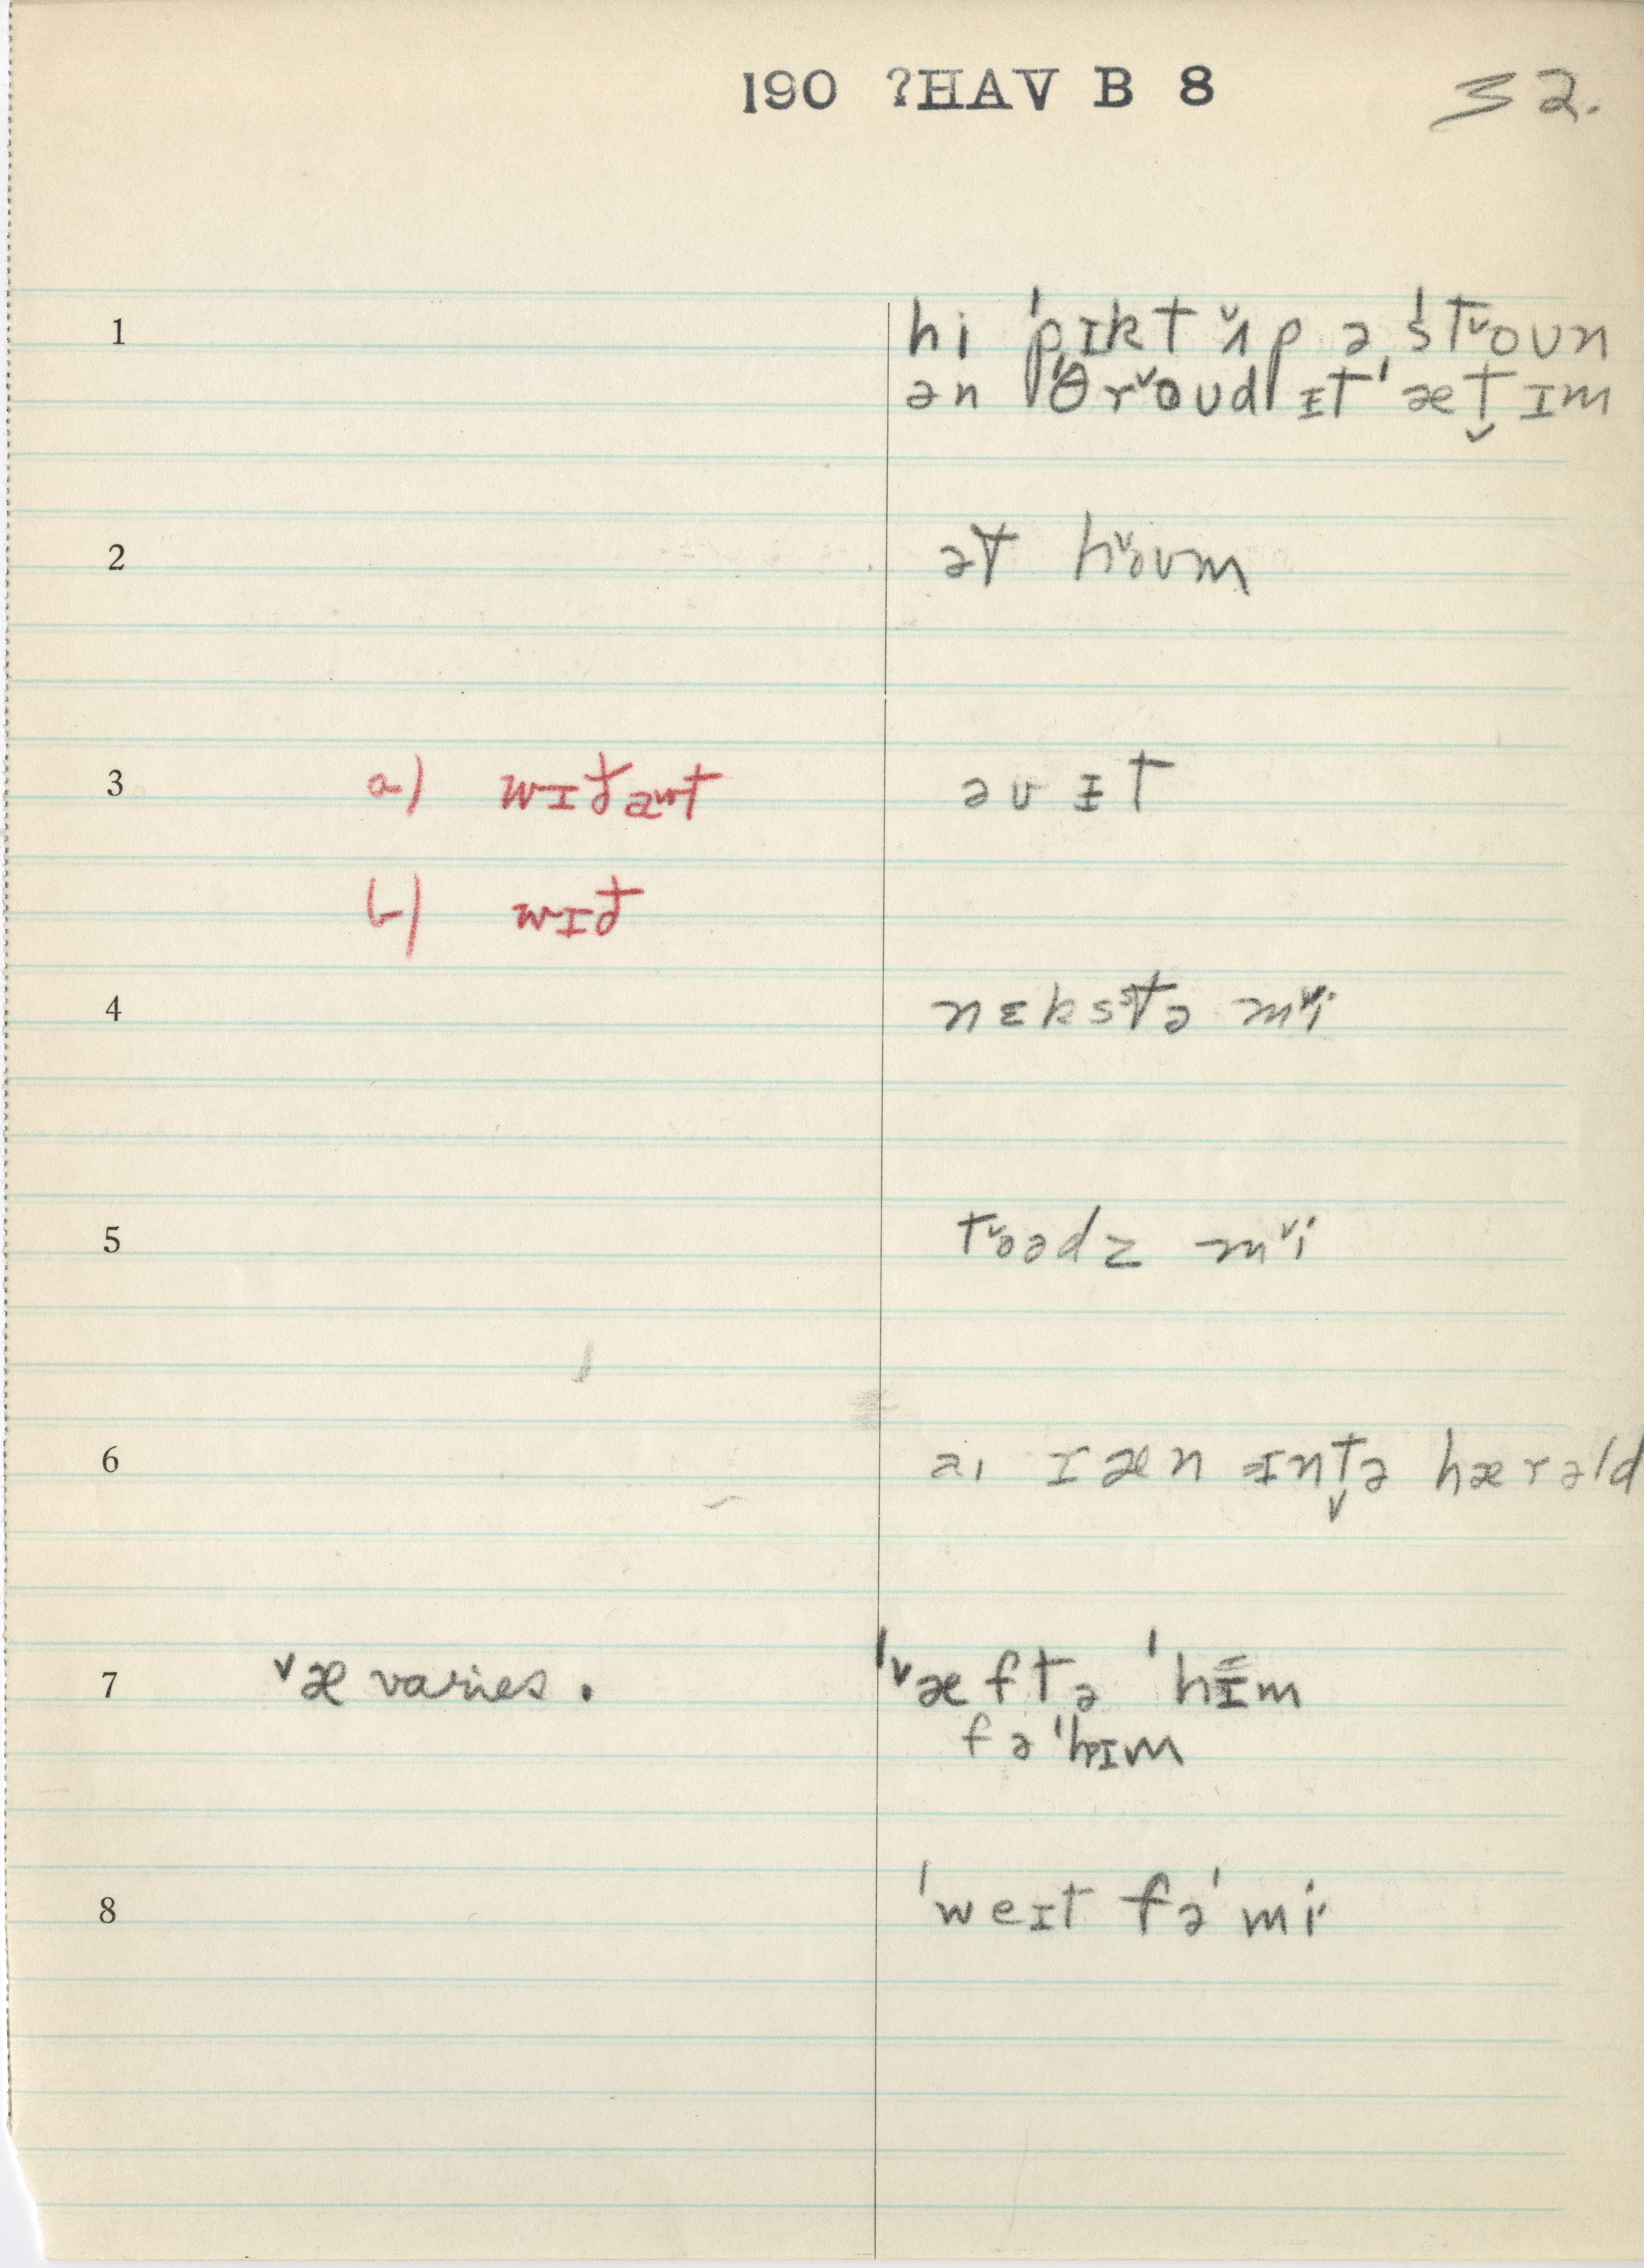 190 ?HAV B 8 32.
1 hi ˈpɪkt ˇʌp ə ˈstˇoun
ən ˈθrˇoud ɪt ˈæt̬ ɪm
2 ət hˇoum
3 a) wɪðaut əv ɪt
b) wɪð
4 nɛkstə mˇi
5 tˇoədz mˇi
6 aɪ ræn ɪnt̬ə hærəld
7 ˇæ varies. ˈˇæftə ˈhɪm
fə ˈhɪm
8 ˈweɪt fə ˈmi